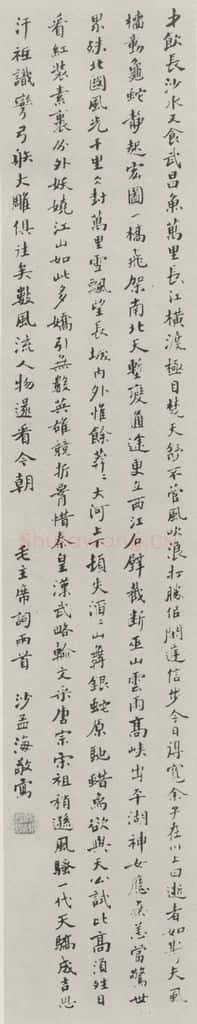 才飲長沙水又食武昌魚萬里長江橫渡極目楚天舒不管風吹浪打勝似閒庭信步今日得寬余子在川上曰逝者如斯夫風
檣動龜蛇靜起宏圖一橋飛架南北天塹變通途更立西江石壁截斷巫山雲雨高峽出平湖神女應無恙當驚世
界殊北國風光千里冰封萬里雪飄望長城內外惟餘莽莽大河上下頓失滔滔山舞銀蛇原馳蠟象欲與天公試比高須晴日
看紅裝素裹分外妖嬈江山如此多嬌引無數英雄競折腰惜秦皇漢武略輸文采唐宗宋祖稍遜風騷一代天驕成吉思
汗祇識彎弓射大雕俱往矣數風流人物還看今朝 毛主席詞兩首 沙孟海敬寫